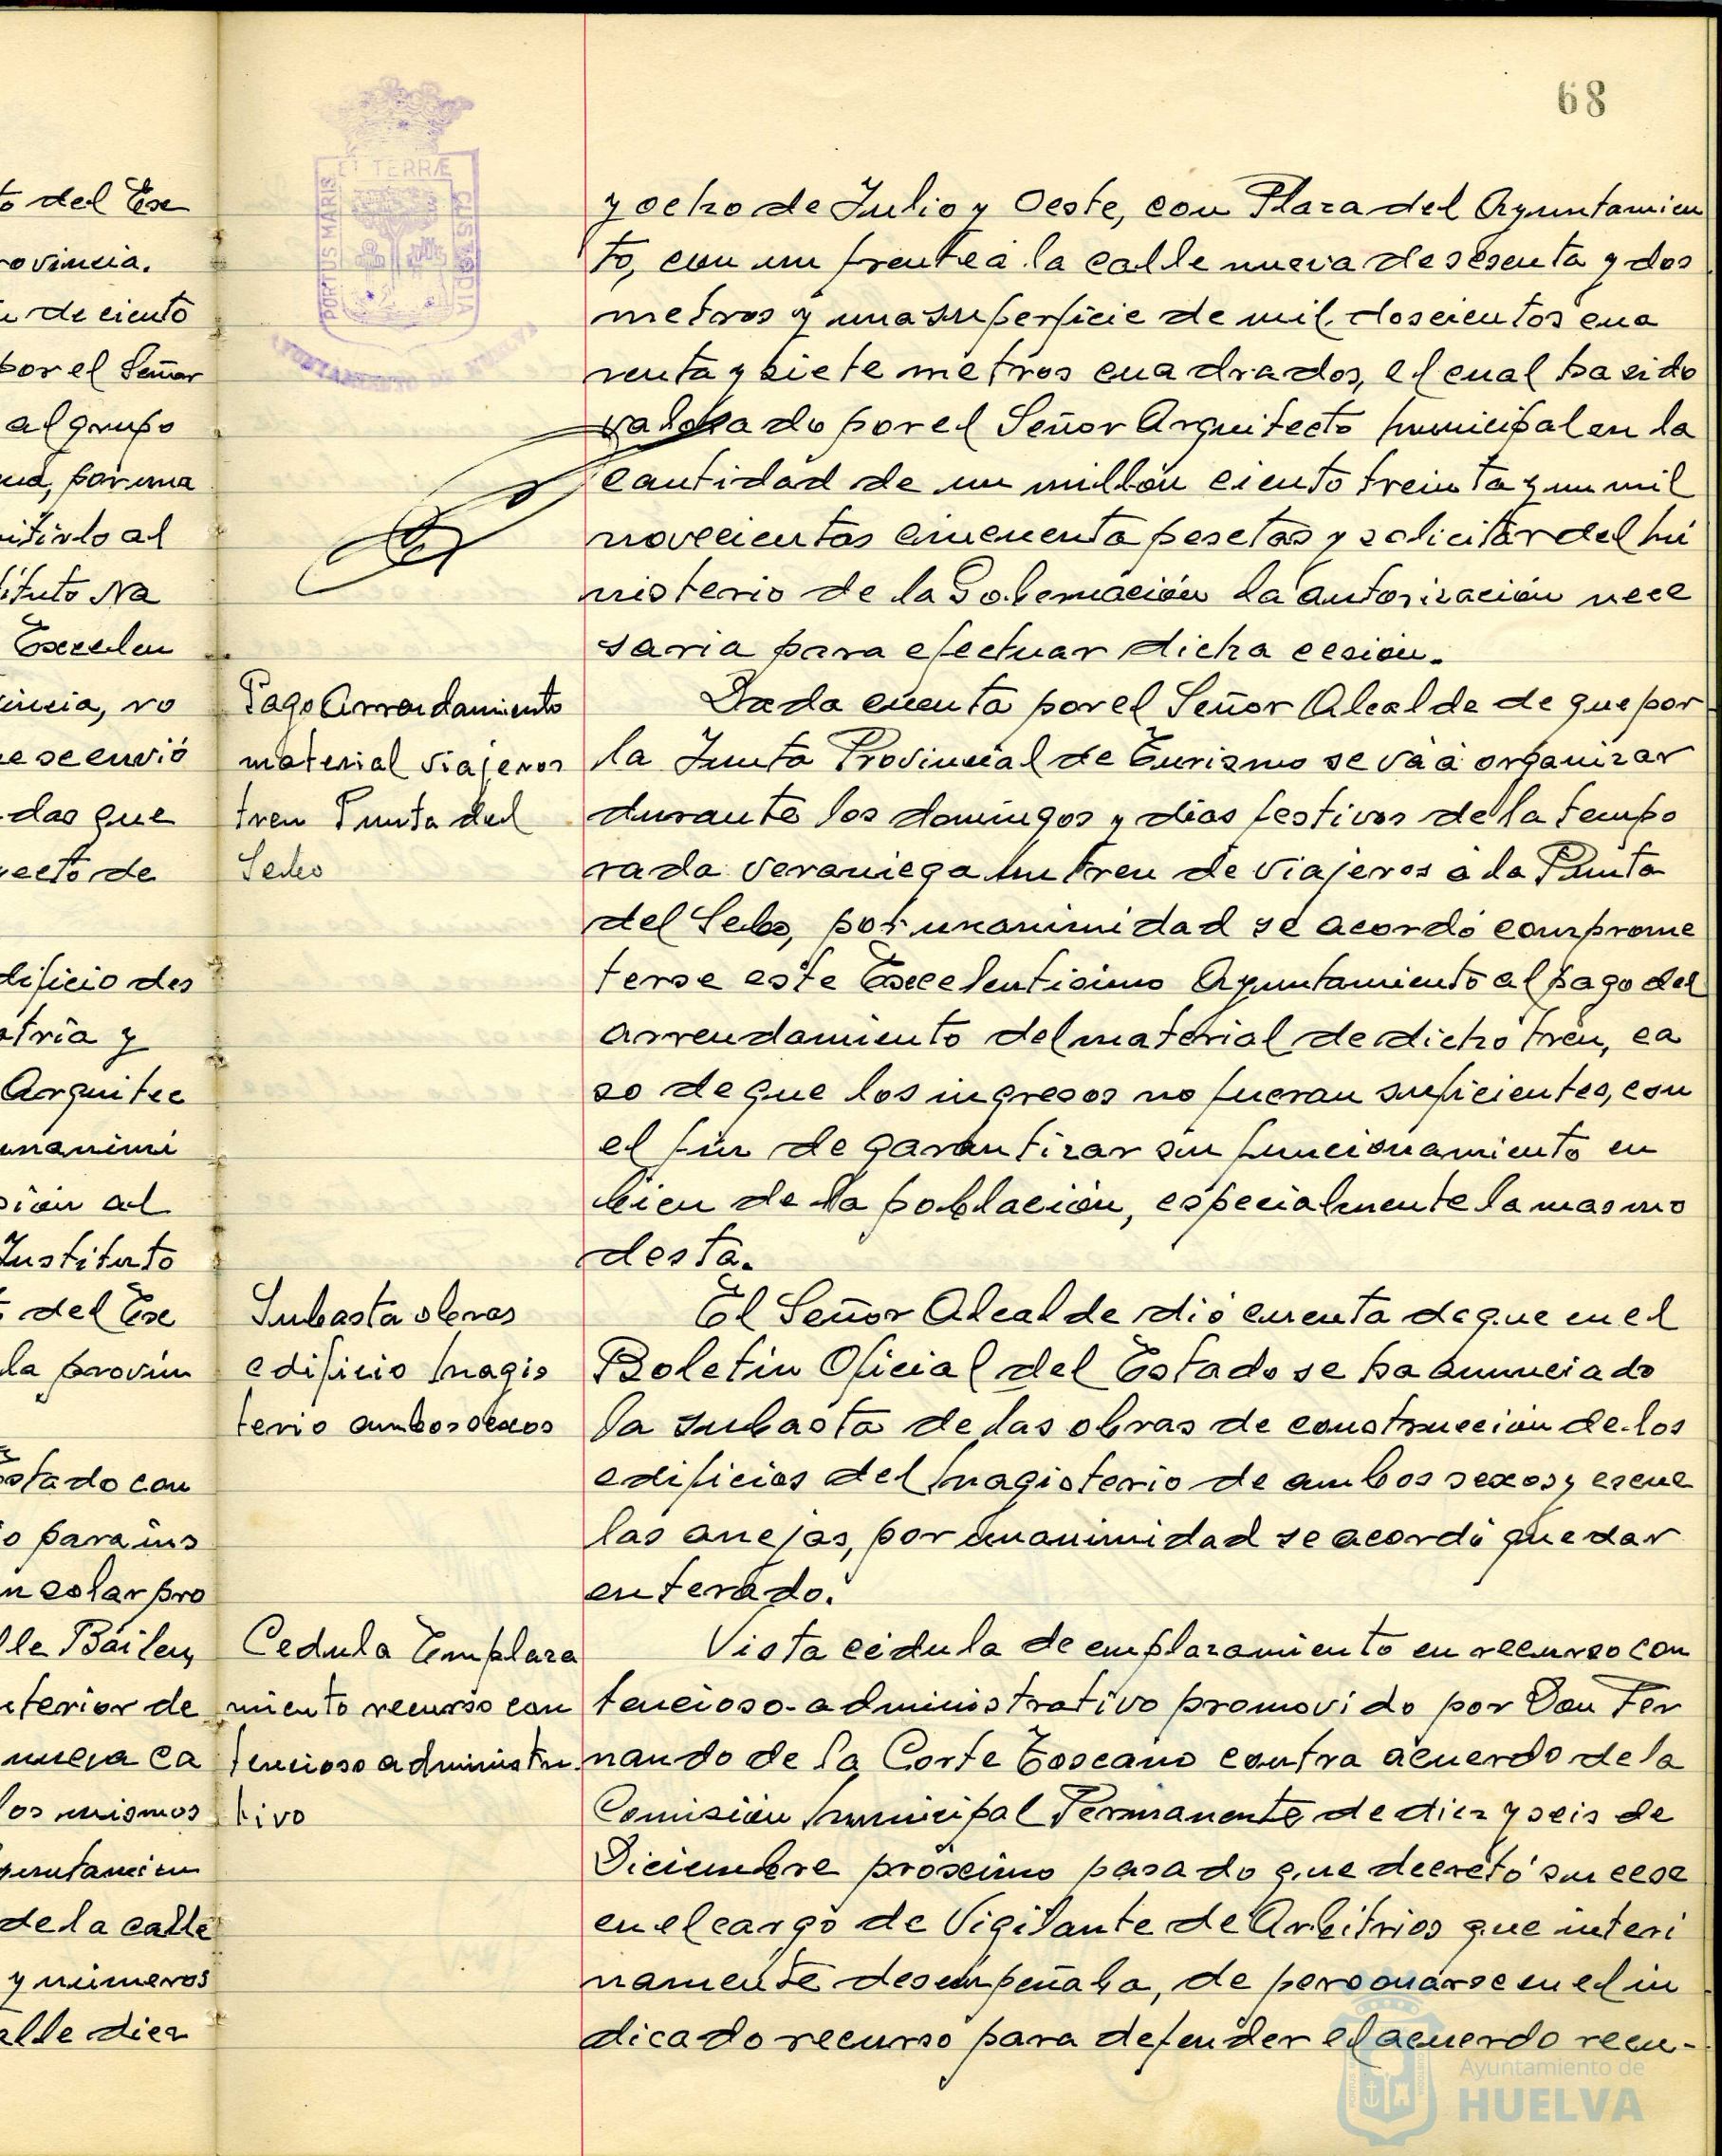 68
to del Exc
rovincia.
n de ciento
por el Señor
al grupo
por una
mitirlo al
tituto Na
Excelen
vincia, ro
ue se envió
das que
yecto de
dificio des
stria y
Arquitec
unanimi
sión al
Instituto
del Exc
la provin
stado con
o para ins
n solar pro
lle Bailen,
nterior de
nueva ca
los mismos
yuntamien
de la calle
y números
alle diez
ET TERRÆ
PORTUS MARIS
CUSTODIA
AYUNTAMIENTO DE HUELVA
y ocho de Julio y Oeste, con Plaza del Ayuntamien
to, con un frente a la calle nueva de sesenta y dos
metros y una superficie de mil doscientos cua
renta y siete metros cuadrados, el cual ha sido
valorado por el Señor Arquitecto Municipal en la
cantidad de un millón ciento treinta y un mil
novecientas cincuenta pesetas y solicitar del Mi
nisterio de la Gobernación la autorización nece
saria para efectuar dicha cesión.
Pago Arrendamiento
material viajeros
tren Punta del
Sebo
Dada cuenta por el Señor Alcalde de que por
la Junta Provincial de Turismo se vá á organizar
durante los domingos y dias festivos de la tempo
rada veraniega un tren de viajeros á la Punta
del Sebo, por unanimidad se acordó comprome
terse este Excelentisimo Ayuntamiento al pago del
arrendamiento del material de dicho tren, ca
so de que los ingresos no fueran suficientes, con
el fin de garantizar su funcionamiento en
bien de la población, especialmente la mas mo
desta.
Subasta obras
edificio Magis
terio ambos sexos
El Señor Alcalde dió cuenta de que en el
Boletin Oficial del Estado se ha anunciado
la subasta de las obras de construcción de los
edificios del Magisterio de ambos sexos y escue
las anejas, por unanimidad se acordó quedar
enterado.
Cedula Emplaza
miento recurso con
tencioso administra
tivo
Vista cédula de emplazamiento en recurso con
tencioso-administrativo promovido por Don Fer
nando de la Corte Toscano contra acuerdo de la
Comisión Municipal Permanente de diez y seis de
Diciembre próximo pasado que decretó su cese
en el cargo de Vigilante de Arbitrios que interi
namente desempeñaba, de personarse en el in
dicado recurso para defender el acuerdo recu-
Ayuntamiento de
HUELVA